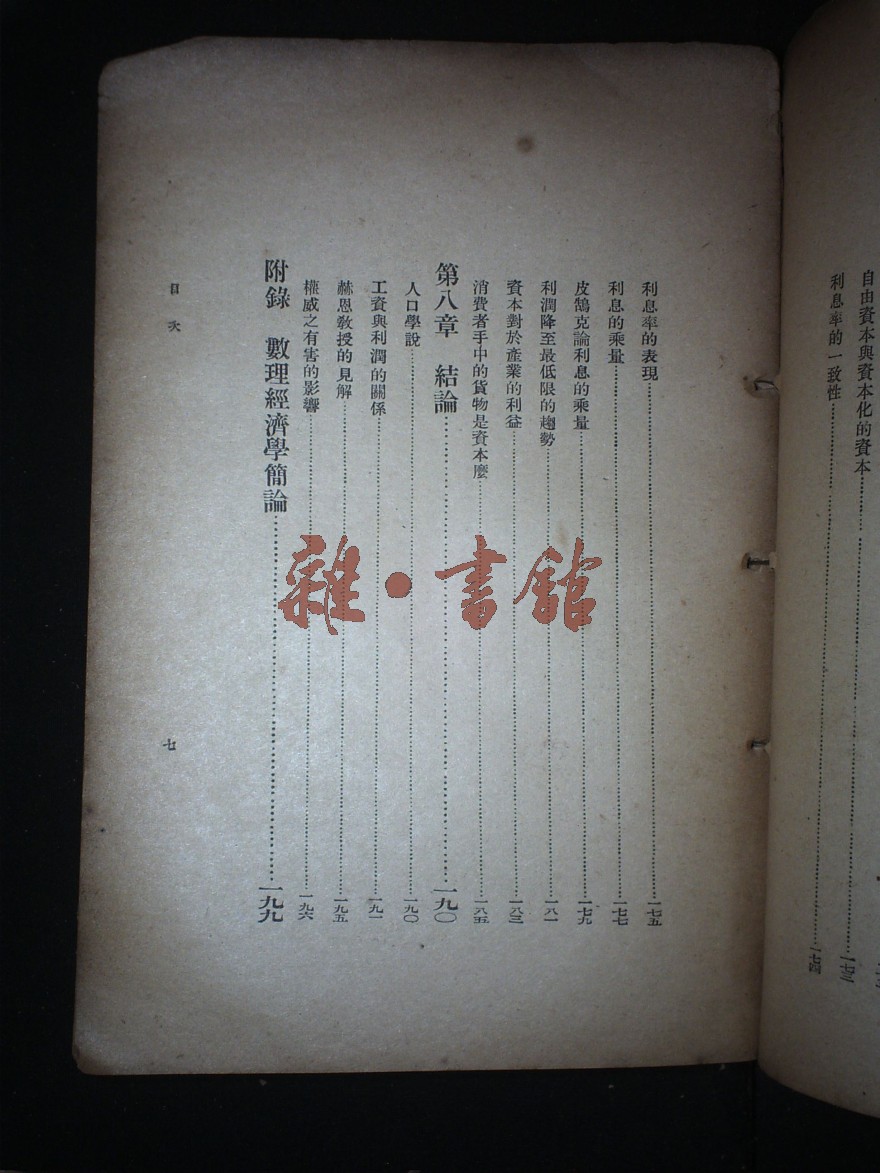 自由資本與資本化的資本……一七三
利息率的一致性……一七四
利息率的表現……一七五
利息的乘量……一七七
皮鵠克論利息的乘量……一七九
利潤降至最低限的趨勢……一八一
資本對於產業的利益……一八三
消費者手中的貨物是資本麼……一八五
第八章 結論……一九〇
人口學說……一九〇
工資與利潤的關係……一九一
赫恩敎授的見解……一九五
權威之有害的影響……一九六
附錄 數理經濟學簡論……一九九
目次
七
雜·書館